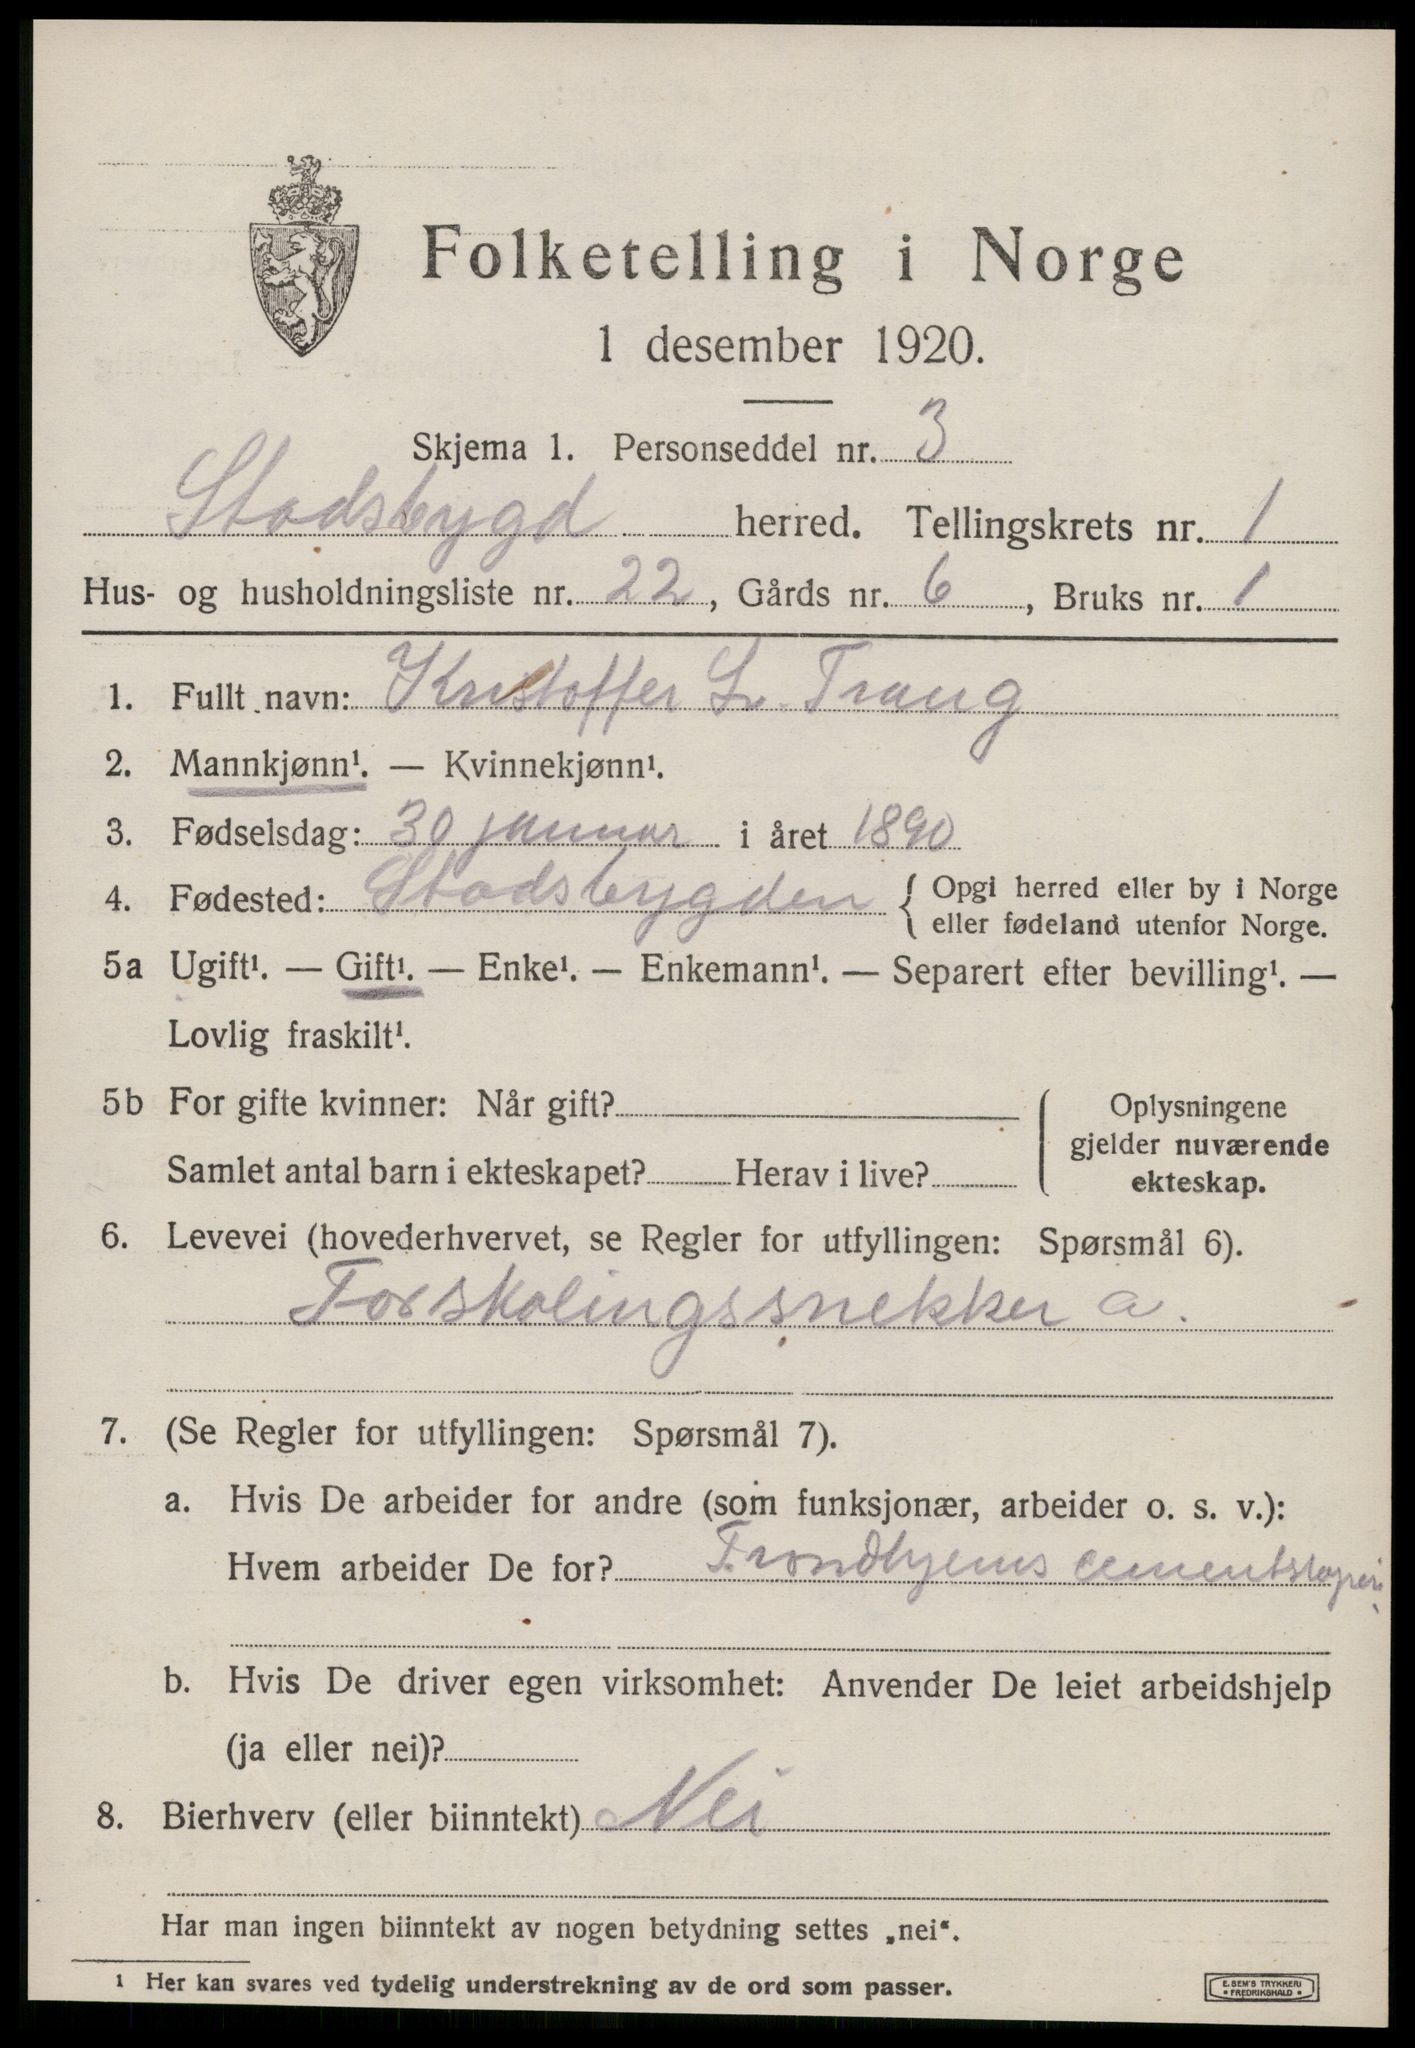 Folketelling i Norge
1 desember 1920.
Skjema 1. Personseddel nr. 3
Stadsbygd herred. Tellingskrets nr. 1
Hus- og husholdningsliste nr. 22, Gårds nr. 6, Bruks nr. 1
1. Fullt navn: Kristoffer L. Trang
2. Mannkjønn¹. — Kvinnekjønn¹.
3. Fødselsdag: 30 januar i året 1890
4. Fødested: Stadsbygden { Opgi herred eller by i Norge
eller fødeland utenfor Norge.
5a Ugift¹. — Gift¹. — Enke¹. — Enkemann¹. — Separert efter bevilling¹. —
Lovlig fraskilt¹.
5b For gifte kvinner: Når gift?
Samlet antal barn i ekteskapet? Herav i live?
Oplysningene
gjelder nuværende
ekteskap.
6. Levevei (hovederhvervet, se Regler for utfyllingen: Spørsmål 6).
Forskalingssnekker a.
7. (Se Regler for utfyllingen: Spørsmål 7).
a. Hvis De arbeider for andre (som funksjonær, arbeider o. s. v.):
Hvem arbeider De for? Trondhjems cementstøperi
b. Hvis De driver egen virksomhet: Anvender De leiet arbeidshjelp
(ja eller nei)?
8. Bierhverv (eller biinntekt) Nei
Har man ingen biinntekt av nogen betydning settes „nei“.
1 Her kan svares ved tydelig understrekning av de ord som passer.
E. SEM'S TRYKKERI
• FREDRIKSHALD •